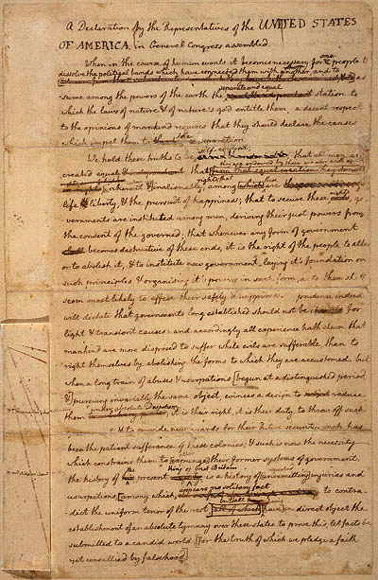 A Declaration by the Representatives of the UNITED STATES
OF AMERICA, in General Congress assembled.
When in the course of human events it becomes necessary for one people to
dissolve the political bands which have connected them with another, and to
assume among the powers of the earth the separate and equal station to
which the laws of nature & of nature's god entitle them, a decent respect
to the opinions of mankind requires that they should declare the causes
which impel them to the separation.
We hold these truths to be self-evident, that all men are
created equal that from that equal creation they
rights inherent & inalienable, among which are
life & liberty, & the pursuit of happiness; that to secure these rights, go-
vernments are instituted among men, deriving their just powers from
the consent of the governed; that whenever any form of government
becomes destructive of these ends, it is the right of the people to alter
or to abolish it, & to institute new government, laying it's foundation on
such principles & organising it's powers in such form, as to them shall
seem most likely to effect their safety & happiness. prudence indeed
will dictate that governments long established should not be changed for
light & transient causes: and accordingly all experience hath shewn that
mankind are more disposed to suffer while evils are sufferable, than to
right themselves by abolishing the forms to which they are accustomed. but
when a long train of abuses & usurpations [begun at a distinguished period
& pursuing invariably the same object, evinces a design to reduce
them under absolute Despotism it is their right, it is their duty, to throw off such
& to provide new guards for their future security. such has
been the patient sufferance of these colonies; & such is now the necessity
which constrains them to [expunge] their former systems of government.
the history of the present King of Great Britain is a history of injuries and
usurpations, [among which appears no solitary fact to contra-
dict the uniform tenor of the rest have in direct object the
establishment of an absolute tyranny over these states. to prove this, let facts be
submitted to a candid world, [for the truth of which we pledge a faith
yet unsullied by falsehood]